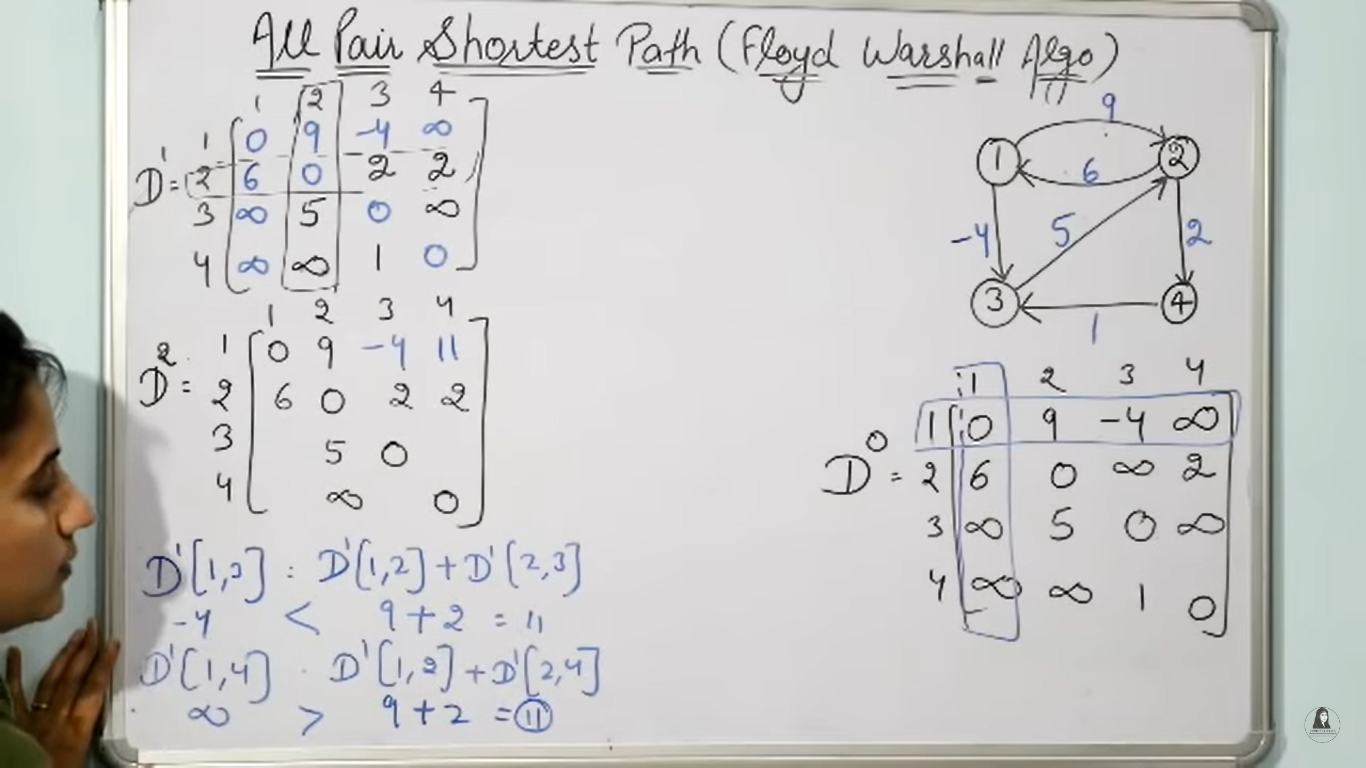 All Pair Shortest Path (Floyd Warshall Algo)
1 2 3 4
D¹ = 1 0 9 -4 ∞
2 6 0 2 2
3 ∞ 5 0 ∞
4 ∞ ∞ 1 0
1 2 3 4
D² = 1 0 9 -4 11
2 6 0 2 2
3 5 0
4 ∞ 0
D¹[1,3] : D¹[1,2] + D¹[2,3]
-4 < 9+2 = 11
D¹[1,4] . D¹[1,2] + D¹[2,4]
∞ > 9+2 = 11
9
1 2
6
-4 5 2
3 4
1
1 2 3 4
D⁰ = 1 0 9 -4 ∞
2 6 0 ∞ 2
3 ∞ 5 0 ∞
4 ∞ ∞ 1 0